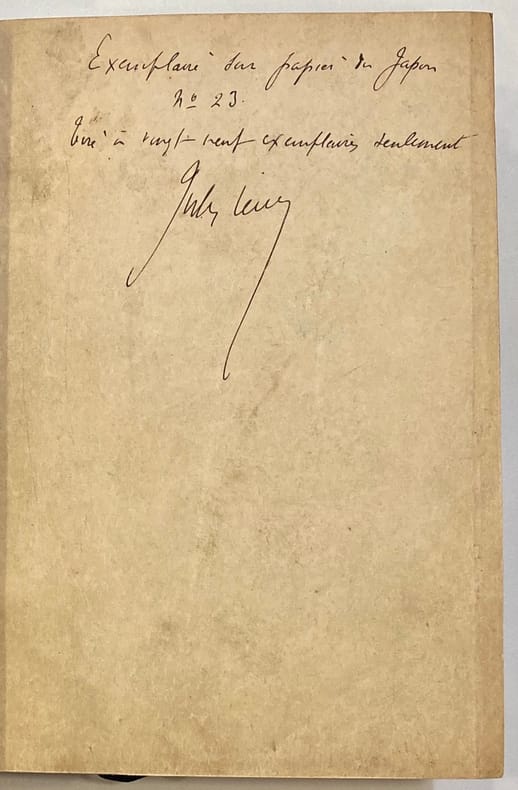 Exemplaire sur papier du Japon
No 23.
Tiré à vingt neuf exemplaires seulement
Jules Lévy